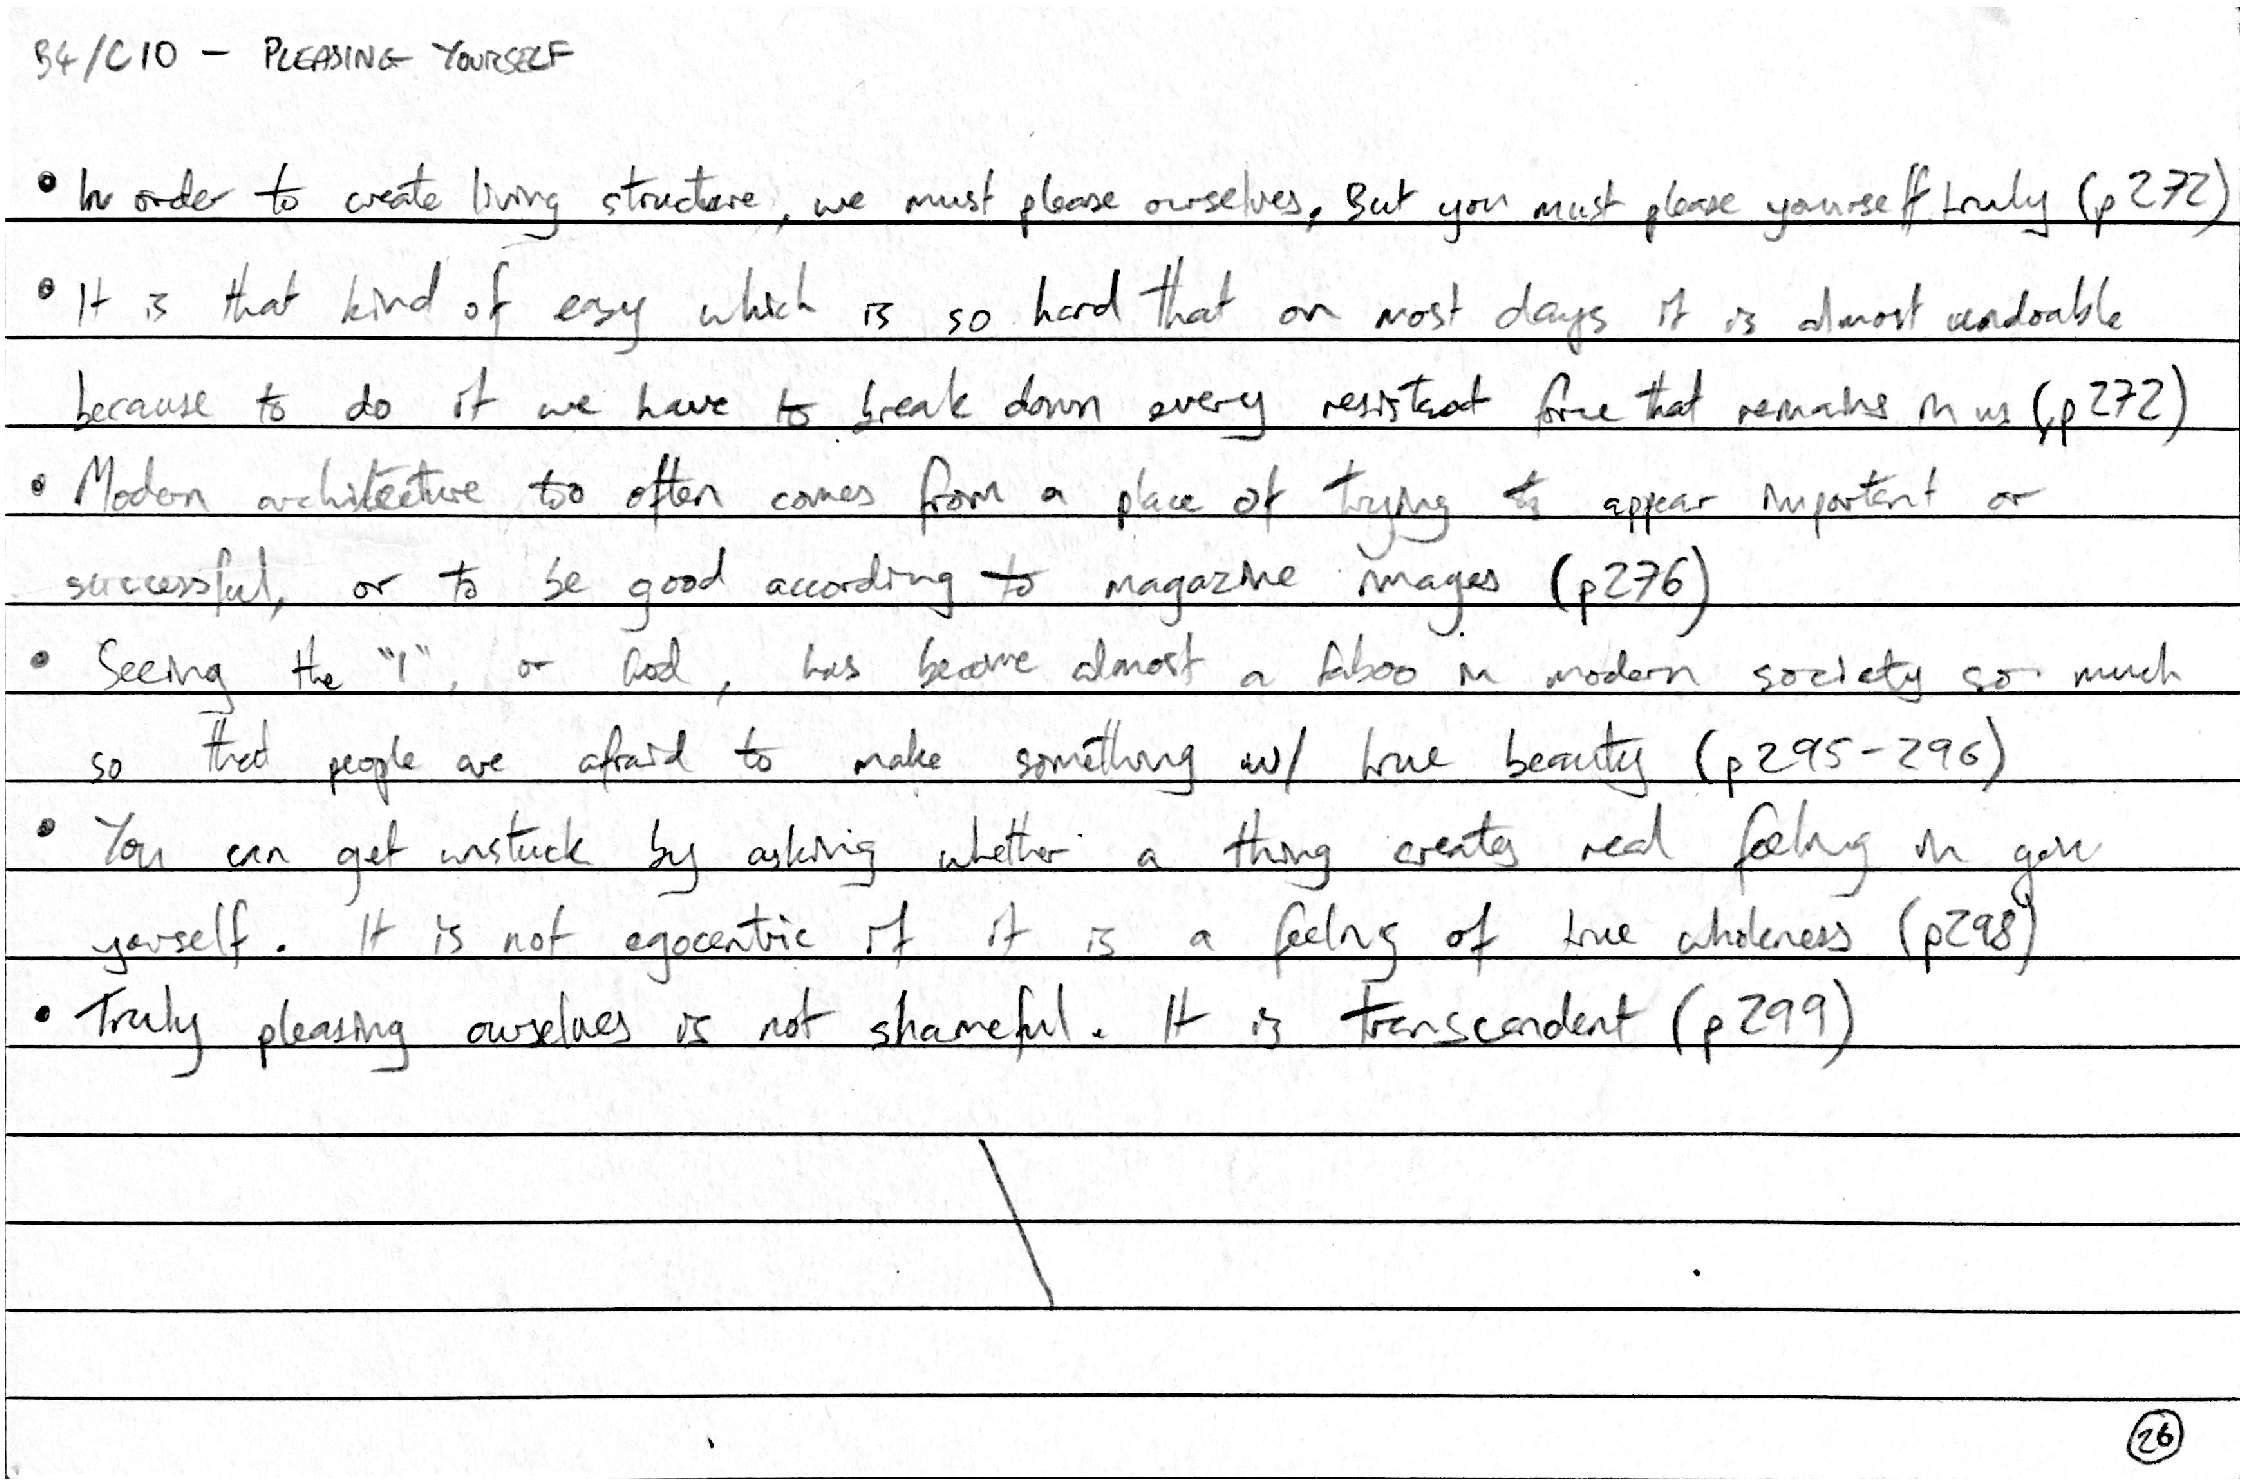 B4/C10 – PLEASING YOURSELF
• In order to create living structure, we must please ourselves. But you must please yourself truly (p272)
• It is that kind of easy which is so hard that on most days it is almost undoable
because to do it we have to break down every resistant force that remains in us (p272)
• Modern architecture too often comes from a place of trying to appear important or
successful, or to be good according to magazine images (p276)
• Seeing the "I", or God, has become almost a taboo in modern society so much
so that people are afraid to make something w/ true beauty (p295-296)
• You can get unstuck by asking whether a thing creates real feeling in you
yourself. It is not egocentric if it is a feeling of true wholeness (p298)
• Truly pleasing ourselves is not shameful. It is transcendent (p299)
26